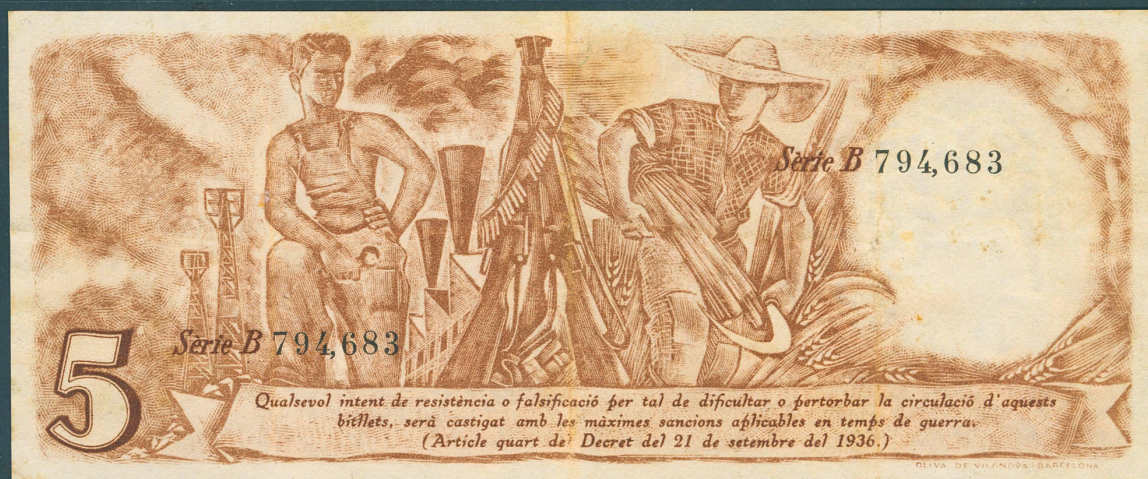 Sèrie B 794,683
5
Sèrie B 794,683
Qualsevol intent de resistència o falsificació per tal de dificultar o pertorbar la circulació d'aquests
bitllets, serà castigat amb les màximes sancions aplicables en temps de guerra.
(Article quart del Decret del 21 de setembre del 1936.)
OLIVA DE VILANOVA : BARCELONA